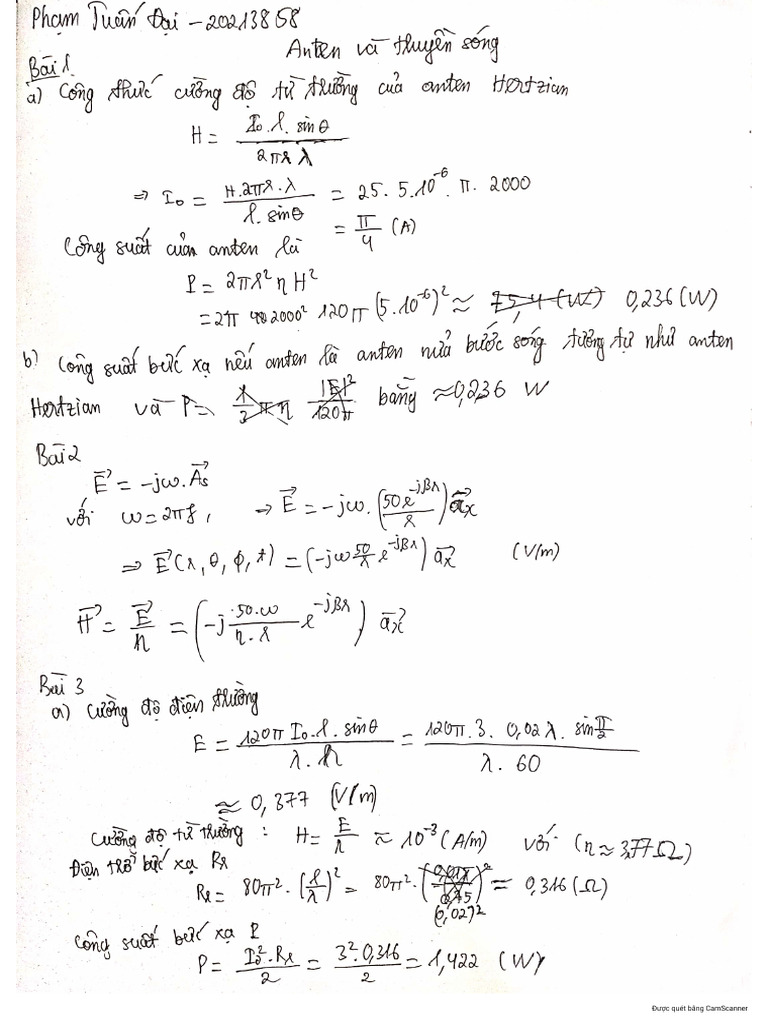 Phạm Tuấn Đại - 20213858
Anten và truyền sóng
Bài 1
a) Công thức cường độ từ trường của anten Hertzian
H = I₀.l.sinθ / 2πrλ
⇒ I₀ = H.2πr.λ / l.sinθ = 25. 5.10⁻⁶. π. 2000
= π/4 (A)
Công suất của anten là
P = 2πr²ηH²
= 2π 2000² 120π (5.10⁻⁶)² ≈ 75,4 (W) 0,236 (W)
b) Công suất bức xạ nếu anten là anten nửa bước sóng tương tự như anten
Hertzian và P = 1/3 π η |E|²/120π bằng ≈ 0,236 W
Bài 2
E⃗ = -jω.A⃗s
với ω = 2πf, ⇒ E⃗ = -jω.(50e^-jβr / r) a⃗x
⇒ E⃗(r,θ,ϕ,t) = (-jω 50/r e^-jβr) a⃗x (V/m)
H⃗ = E⃗/η = (-j .50.ω / η.r e^-jβr) a⃗x
Bài 3
a) Cường độ điện trường
E = 120π I₀.l.sinθ / λ.r = 120π.3. 0,02λ. sin π/2 / λ. 60
≈ 0,377 (V/m)
Cường độ từ trường : H = E/η ≈ 10⁻³ (A/m) với (η ≈ 377Ω)
Điện trở bức xạ Rr
Rr = 80π².(l/λ)² = 80π².(0,02)² = 0,316 (Ω)
Công suất bức xạ P
P = I₀².Rr / 2 = 3².0,316 / 2 = 1,422 (W)
Được quét bằng CamScanner